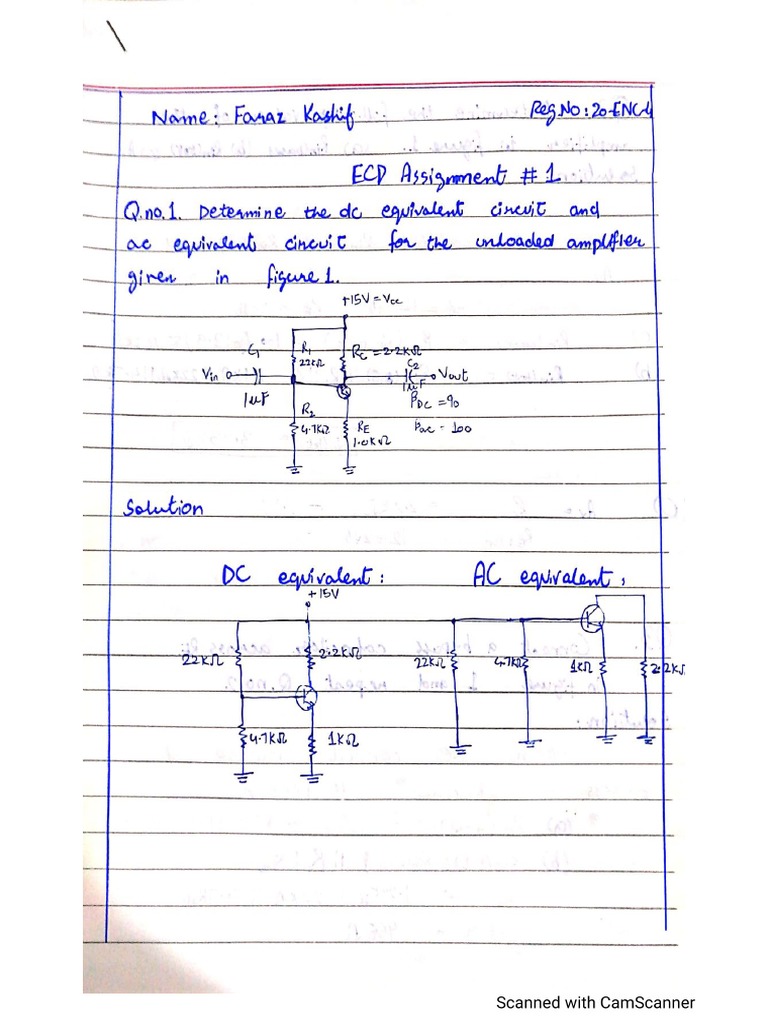 Name: Faraz Kashif Reg.No: 20-ENC-4
ECD Assignment # 1
Q.no.1. Determine the dc equivalent circuit and
ac equivalent circuit for the unloaded amplifier
given in figure 1.
+15V = Vcc
C1
R1
22KΩ
RC = 2.2KΩ
C2
Vin
Vout
1μF
1μF
βDC = 90
R2
4.7KΩ
RE
1.0KΩ
βac = 100
Solution
DC equivalent: AC equivalent:
+15V
22KΩ
2.2KΩ
22KΩ
4.7KΩ
1KΩ
2.2KΩ
4.7KΩ
1KΩ
Scanned with CamScanner